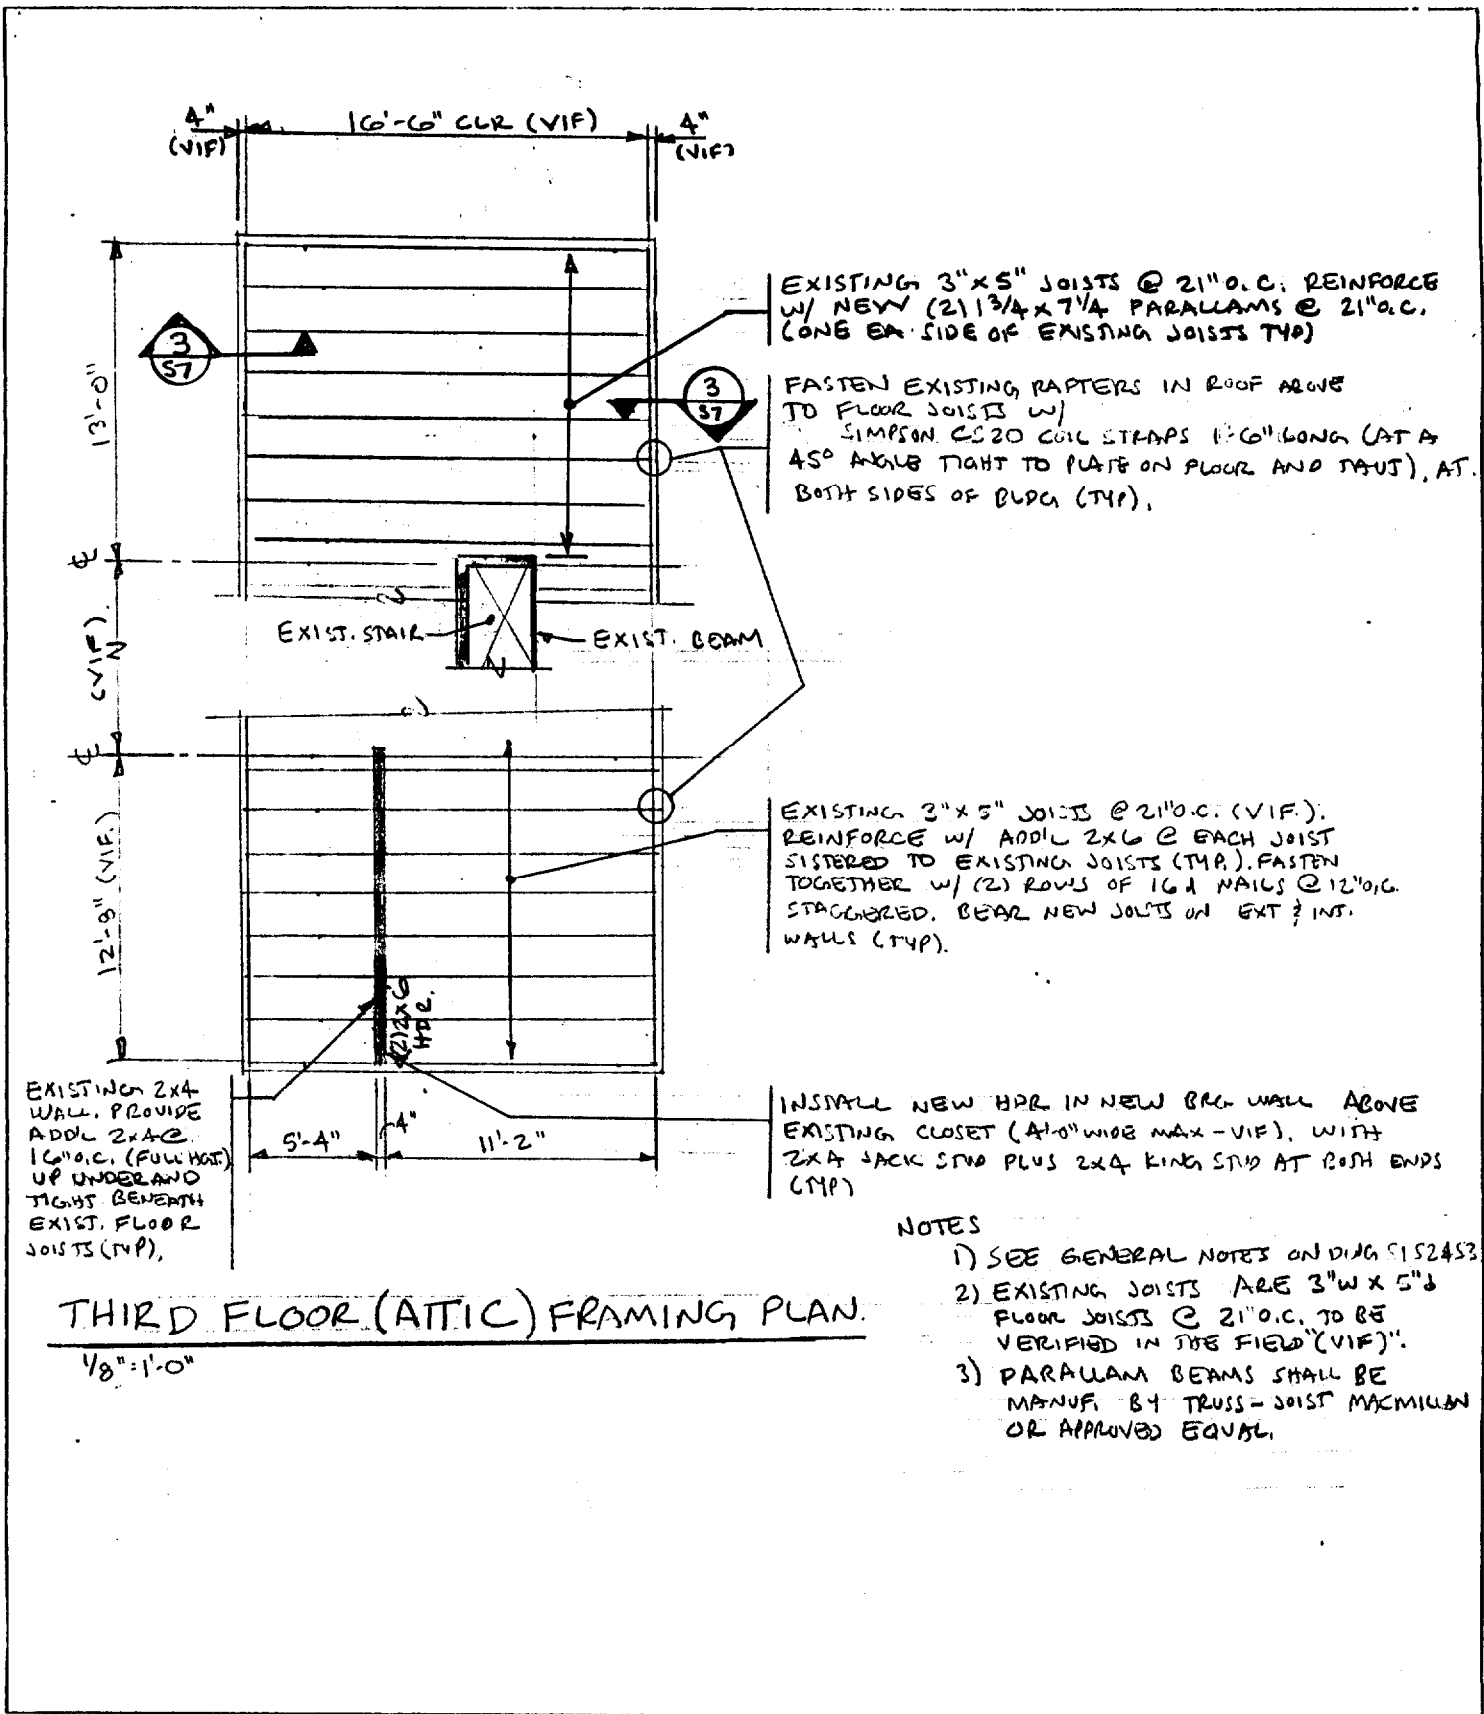 4"
(VIF)
16'-6" CLR (VIF)
4"
(VIF)
13'-0"
3
S7
EXISTING 3"x5" JOISTS @ 21"O.C. REINFORCE
W/ NEW (2) 1 3/4 x 7 1/4 PARALLAMS @ 21"O.C.
(ONE EA. SIDE OF EXISTING JOISTS TYP)
3
S7
FASTEN EXISTING RAFTERS IN ROOF ABOVE
TO FLOOR JOISTS W/
SIMPSON CS20 COIL STRAPS 1'-6" LONG (AT A
45° ANGLE TIGHT TO PLATE ON FLOOR AND TAUT), AT
BOTH SIDES OF BLDG (TYP).
℄
(VIF).
EXIST. STAIR
EXIST. BEAM
℄
12'-8" (VIF.)
EXISTING 3"x5" JOISTS @ 21"O.C. (VIF.).
REINFORCE W/ ADD'L 2x6 @ EACH JOIST
SISTERED TO EXISTING JOISTS (TYP.). FASTEN
TOGETHER W/ (2) ROWS OF 16d NAILS @ 12"O.C.
STAGGERED. BEAR NEW JOISTS ON EXT & INT.
WALLS (TYP).
(2) 2x6
HDR.
EXISTING 2x4
WALL. PROVIDE
ADD'L 2x4 @
16"O.C. (FULL HGT.)
UP UNDER AND
TIGHT BENEATH
EXIST. FLOOR
JOISTS (TYP).
5'-4"
4"
11'-2"
INSTALL NEW HDR IN NEW BRG WALL ABOVE
EXISTING CLOSET (4'-0" WIDE MAX - VIF). WITH
2x4 JACK STUD PLUS 2x4 KING STUD AT BOTH ENDS
(TYP)
NOTES
1) SEE GENERAL NOTES ON DWG S1 S2 & S3
2) EXISTING JOISTS ARE 3"W x 5"d
FLOOR JOISTS @ 21"O.C. TO BE
VERIFIED IN THE FIELD "(VIF)".
3) PARALLAM BEAMS SHALL BE
MANUF. BY TRUSS-JOIST MACMILLAN
OR APPROVED EQUAL.
THIRD FLOOR (ATTIC) FRAMING PLAN.
1/8"=1'-0"